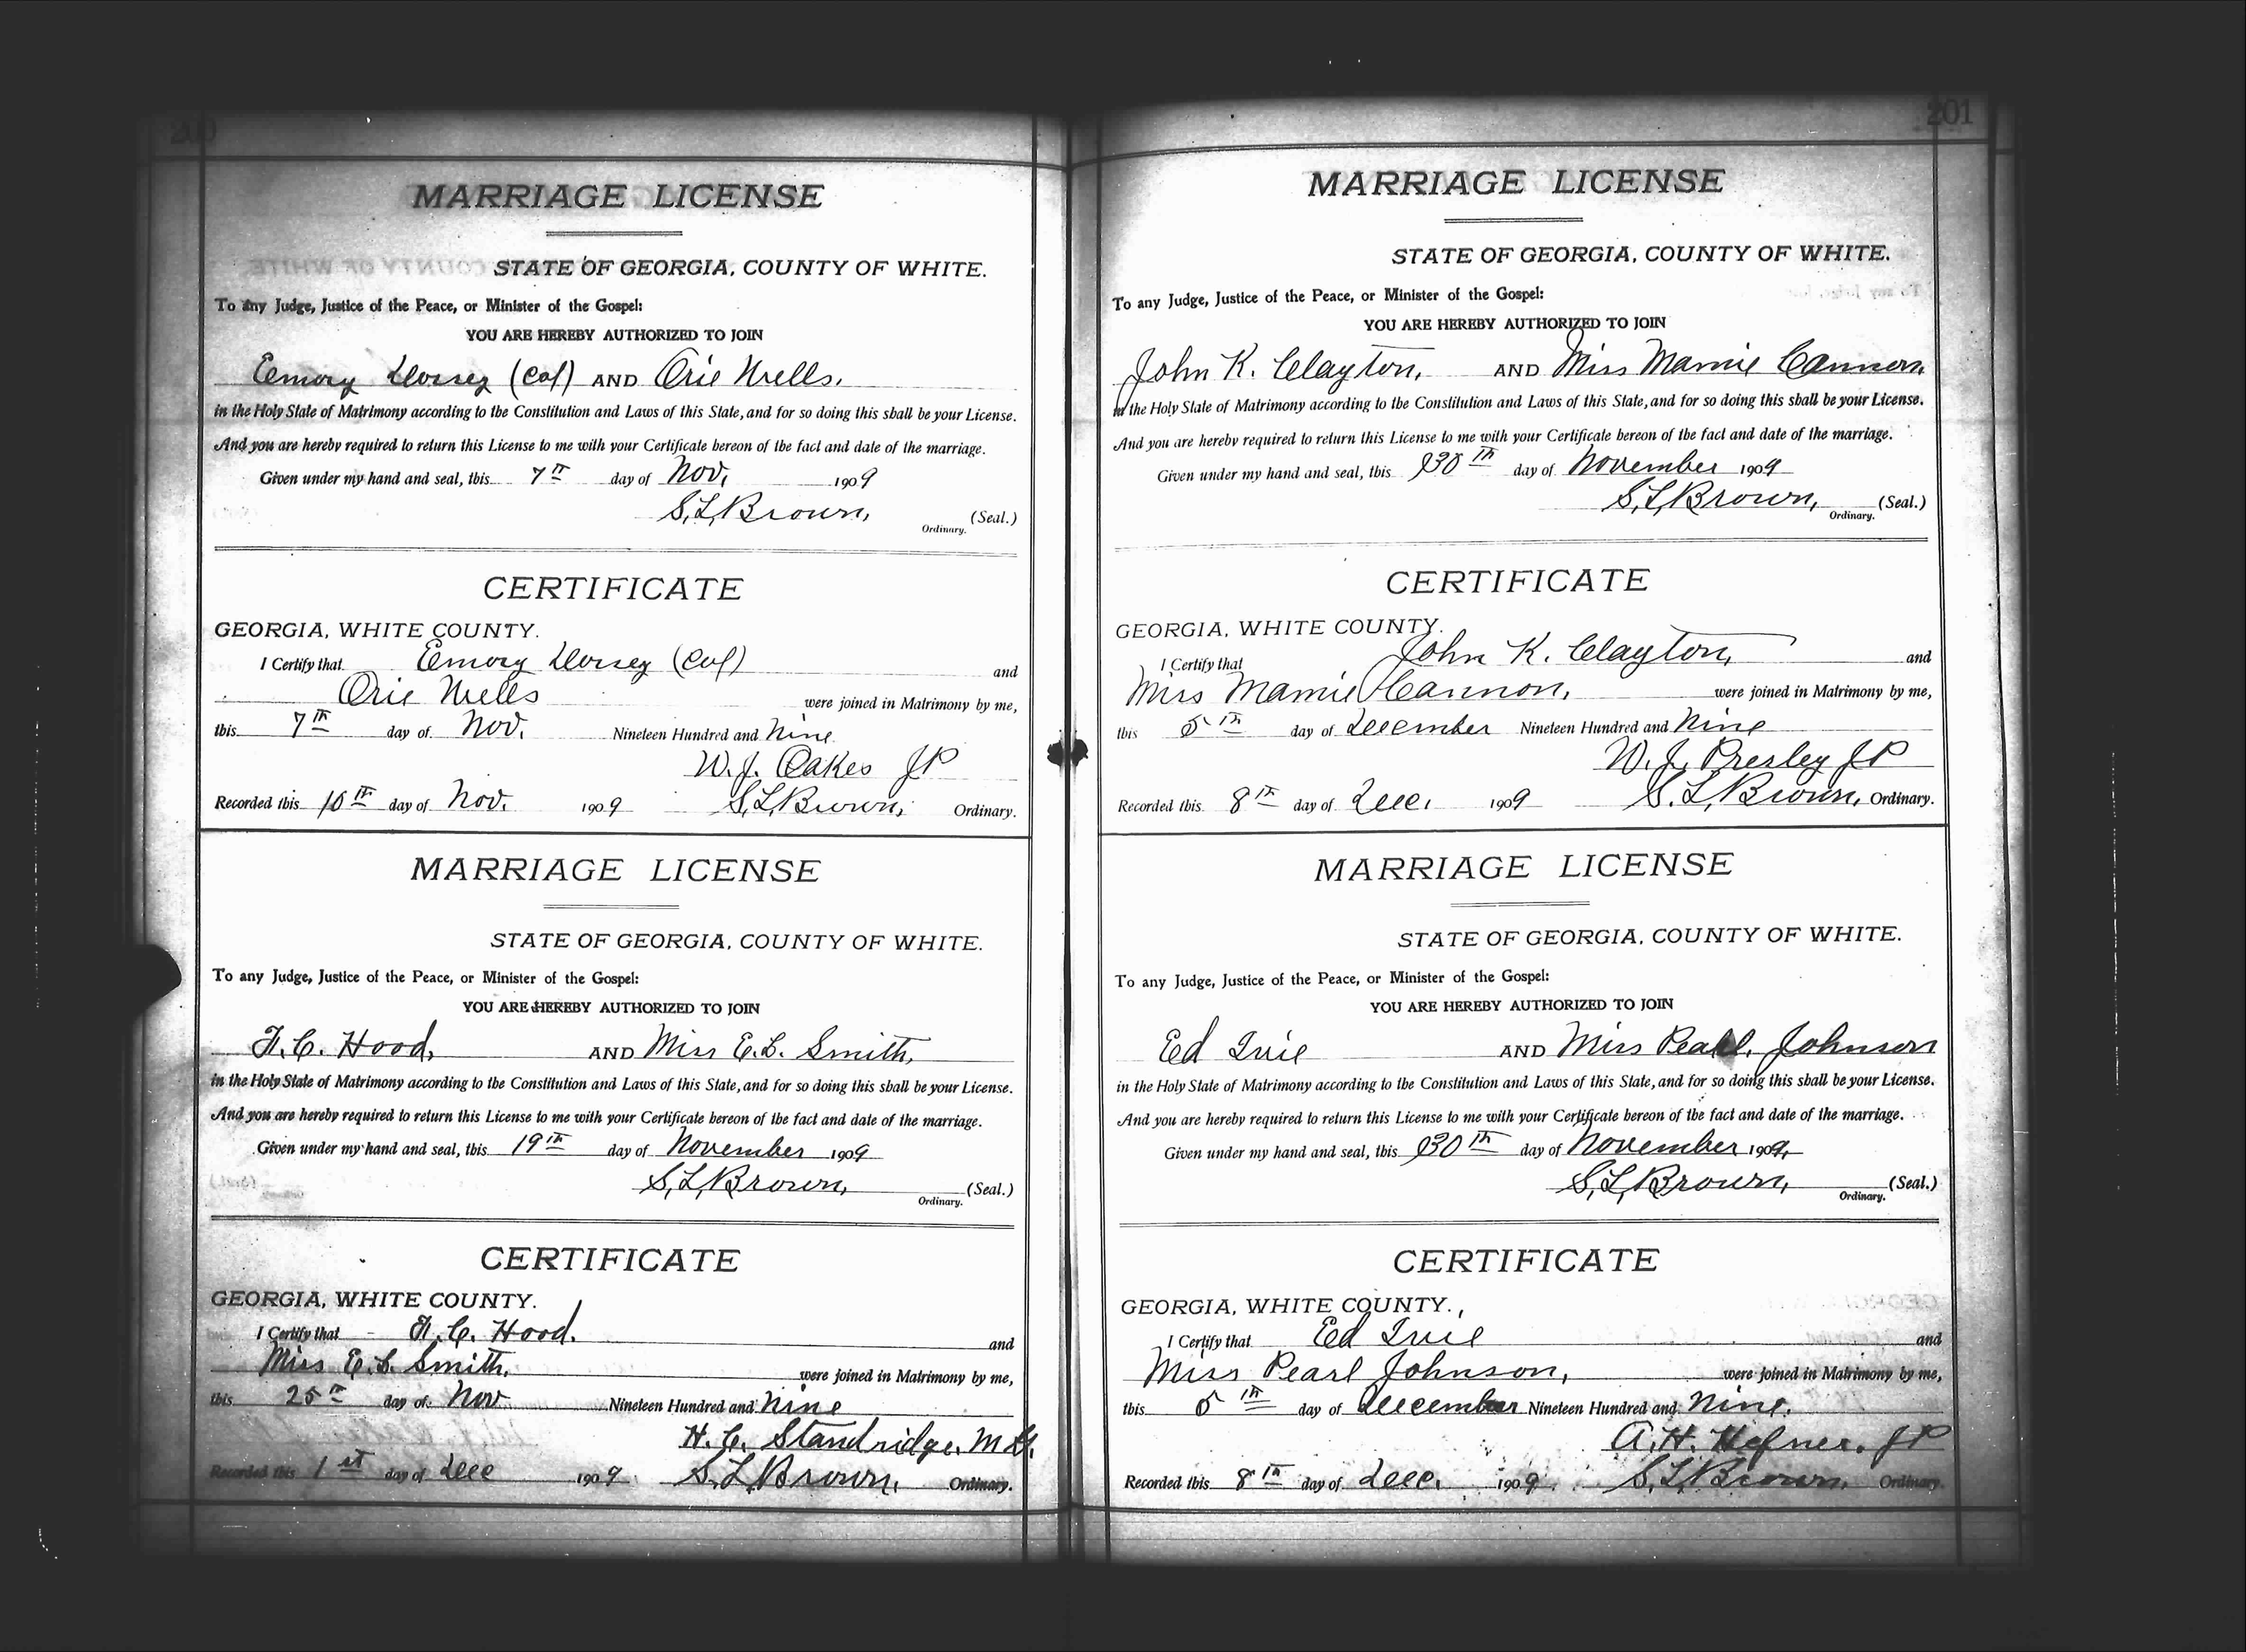 200
MARRIAGE LICENSE
STATE OF GEORGIA, COUNTY OF WHITE.
To any Judge, Justice of the Peace, or Minister of the Gospel:
YOU ARE HEREBY AUTHORIZED TO JOIN
Emory Dorsey (Col) AND Orie Wells,
in the Holy State of Matrimony according to the Constitution and Laws of this State, and for so doing this shall be your License.
And you are hereby required to return this License to me with your Certificate hereon of the fact and date of the marriage.
Given under my hand and seal, this 7th day of Nov, 1909
S,L,Brown, (Seal.)
Ordinary.
CERTIFICATE
GEORGIA, WHITE COUNTY.
I Certify that Emory Dorsey (Col) and
Orie Wells were joined in Matrimony by me,
this 7th day of Nov. Nineteen Hundred and Nine
W.J. Oakes JP
Recorded this 10th day of Nov. 1909 S,L,Brown, Ordinary.
MARRIAGE LICENSE
STATE OF GEORGIA, COUNTY OF WHITE.
To any Judge, Justice of the Peace, or Minister of the Gospel:
YOU ARE HEREBY AUTHORIZED TO JOIN
Hood, AND Miss Smith,
in the Holy State of Matrimony according to the Constitution and Laws of this State, and for so doing this shall be your License.
And you are hereby required to return this License to me with your Certificate hereon of the fact and date of the marriage.
Given under my hand and seal, this 19th day of November 1909
S,L,Brown, (Seal.)
Ordinary.
CERTIFICATE
GEORGIA, WHITE COUNTY.
I Certify that Hood. and
Miss Smith, were joined in Matrimony by me,
this 25th day of Nov Nineteen Hundred and Nine
H.C. Standridge. M.G.
Recorded this 1st day of Dec 1909 S.L,Brown, Ordinary.
201
MARRIAGE LICENSE
STATE OF GEORGIA, COUNTY OF WHITE.
To any Judge, Justice of the Peace, or Minister of the Gospel:
YOU ARE HEREBY AUTHORIZED TO JOIN
John K. Clayton, AND Miss Mamie Cannon,
in the Holy State of Matrimony according to the Constitution and Laws of this State, and for so doing this shall be your License.
And you are hereby required to return this License to me with your Certificate hereon of the fact and date of the marriage.
Given under my hand and seal, this 30th day of November 1909
S,L,Brown, (Seal.)
Ordinary.
CERTIFICATE
GEORGIA, WHITE COUNTY.
I Certify that John K. Clayton, and
Miss Mamie Cannon, were joined in Matrimony by me,
this 5th day of December Nineteen Hundred and Nine
W.J. Presley JP
Recorded this 8th day of Dec. 1909 S.L,Brown, Ordinary.
MARRIAGE LICENSE
STATE OF GEORGIA, COUNTY OF WHITE.
To any Judge, Justice of the Peace, or Minister of the Gospel:
YOU ARE HEREBY AUTHORIZED TO JOIN
Ed Ivie AND Miss Pearl, Johnson
in the Holy State of Matrimony according to the Constitution and Laws of this State, and for so doing this shall be your License.
And you are hereby required to return this License to me with your Certificate hereon of the fact and date of the marriage.
Given under my hand and seal, this 30th day of November 1909,
S,L,Brown, (Seal.)
Ordinary.
CERTIFICATE
GEORGIA, WHITE COUNTY.
I Certify that Ed Ivie and
Miss Pearl Johnson, were joined in Matrimony by me,
this 5th day of December Nineteen Hundred and Nine.
A.H. Hefner. JP
Recorded this 8th day of Dec. 1909 S,L,Brown, Ordinary.